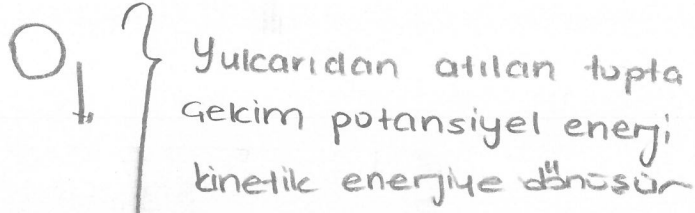 Yukarıdan atılan topta
Çekim potansiyel enerji
kinetik enerjiye dönüşür